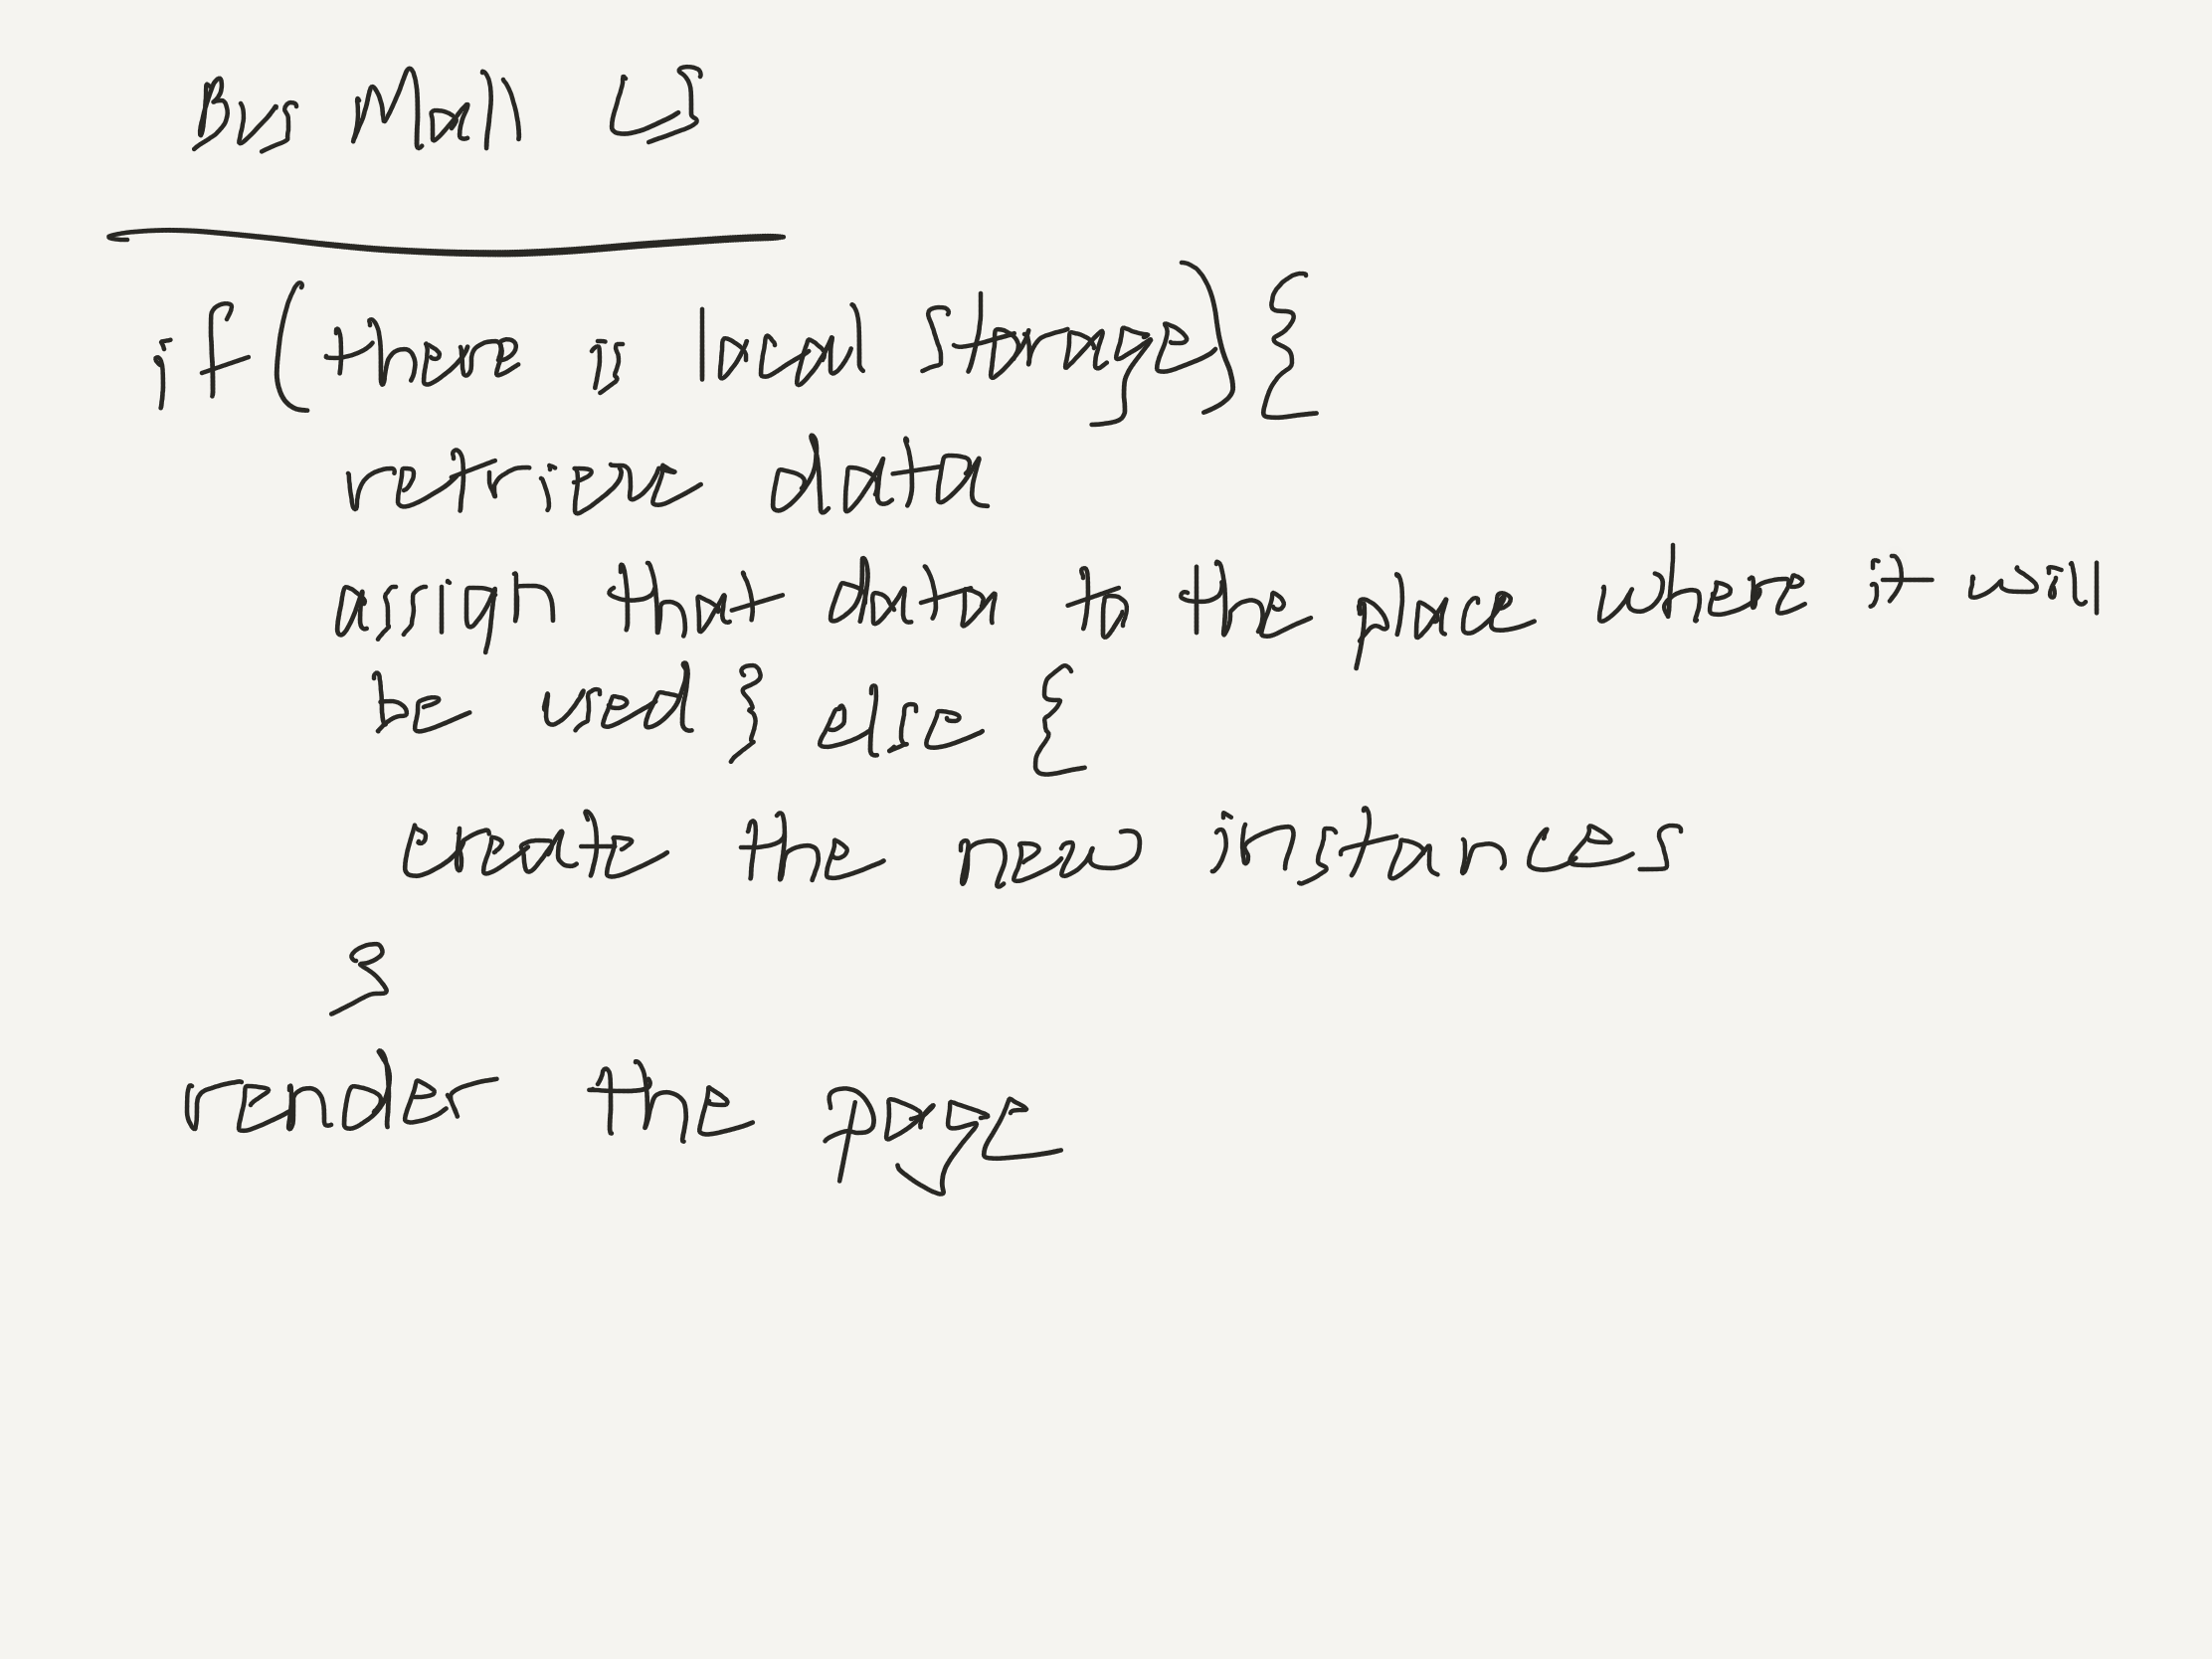 Bus Mall LS
if (there is local storage) {
retrieve data
assign that data to the place where it will
be used } else {
create the new instances
}
render the page